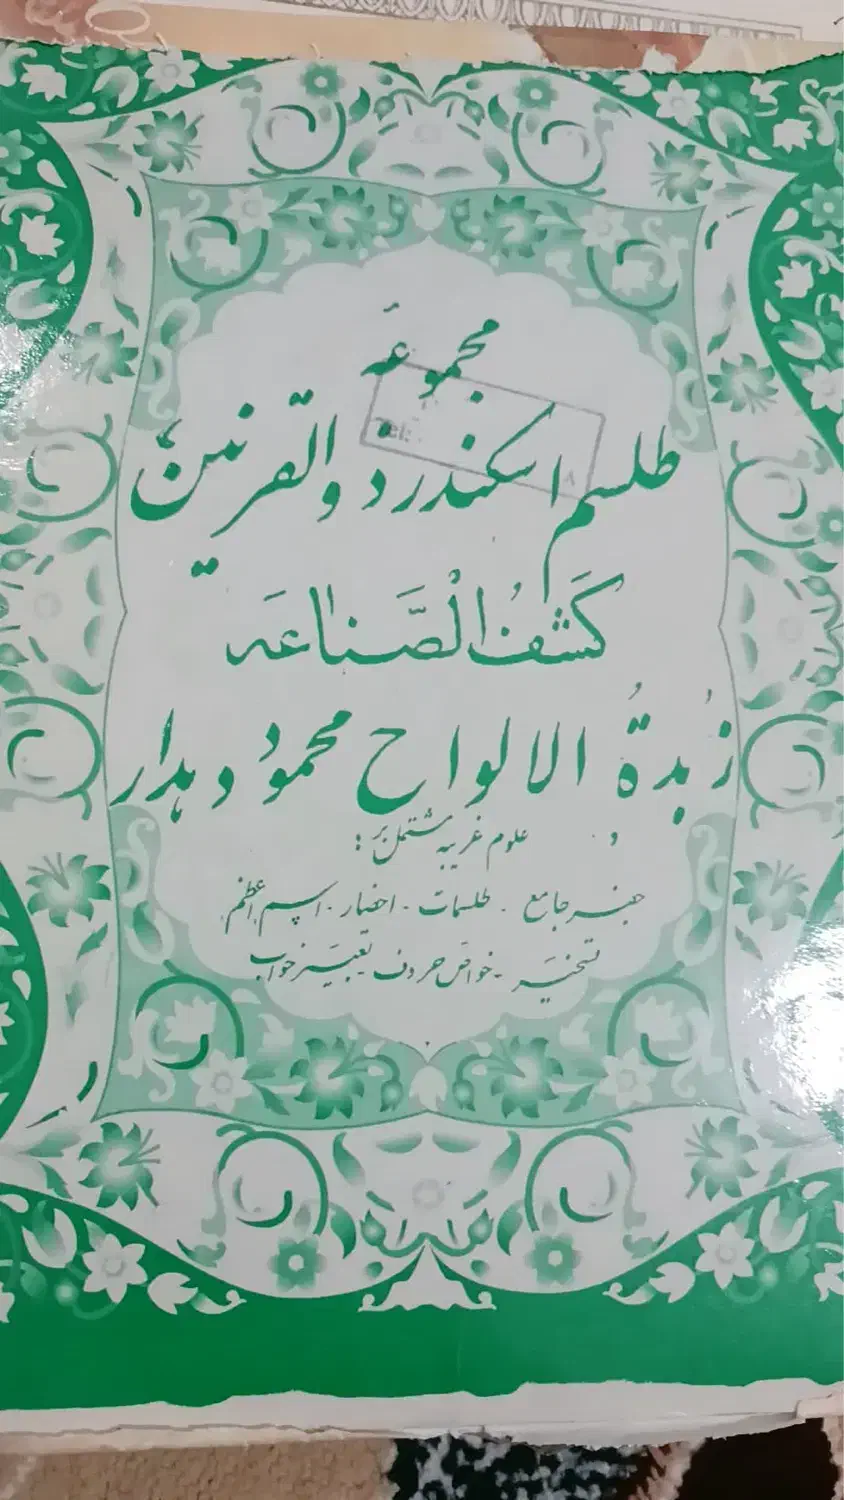 مجموعه
طلسم اسکندر ذوالقرنین
کَشفُ الْصَّناعَه
زُبدةُ الالواح محمود دهدار
علوم غریبه مشتمل بر :
جفر جامع - طلسمات - اخبار - اسم اعظم
تسخیر - خواص حروف تعبیر خواب
Tel: